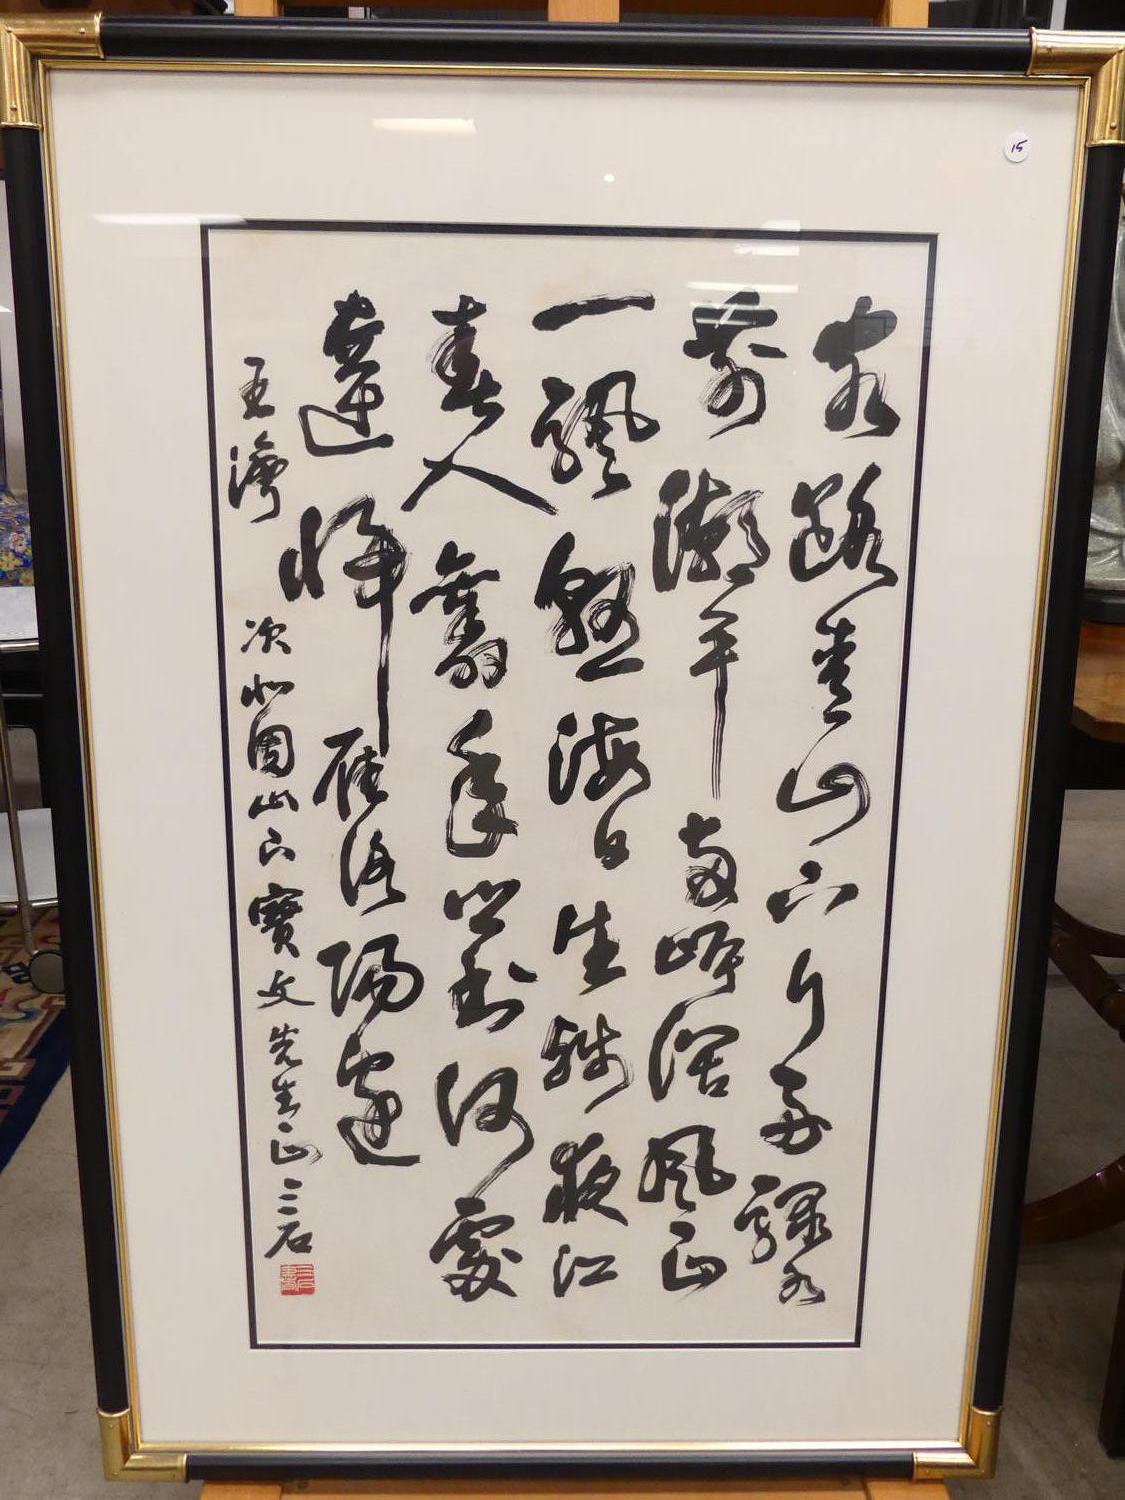 15
客路青山下行舟綠水
前潮平兩岸闊風正
一颿懸海日生殘夜江
春入舊年鄉書何處
達歸雁洛陽邊
王灣 次北固山下寶文先生正三石